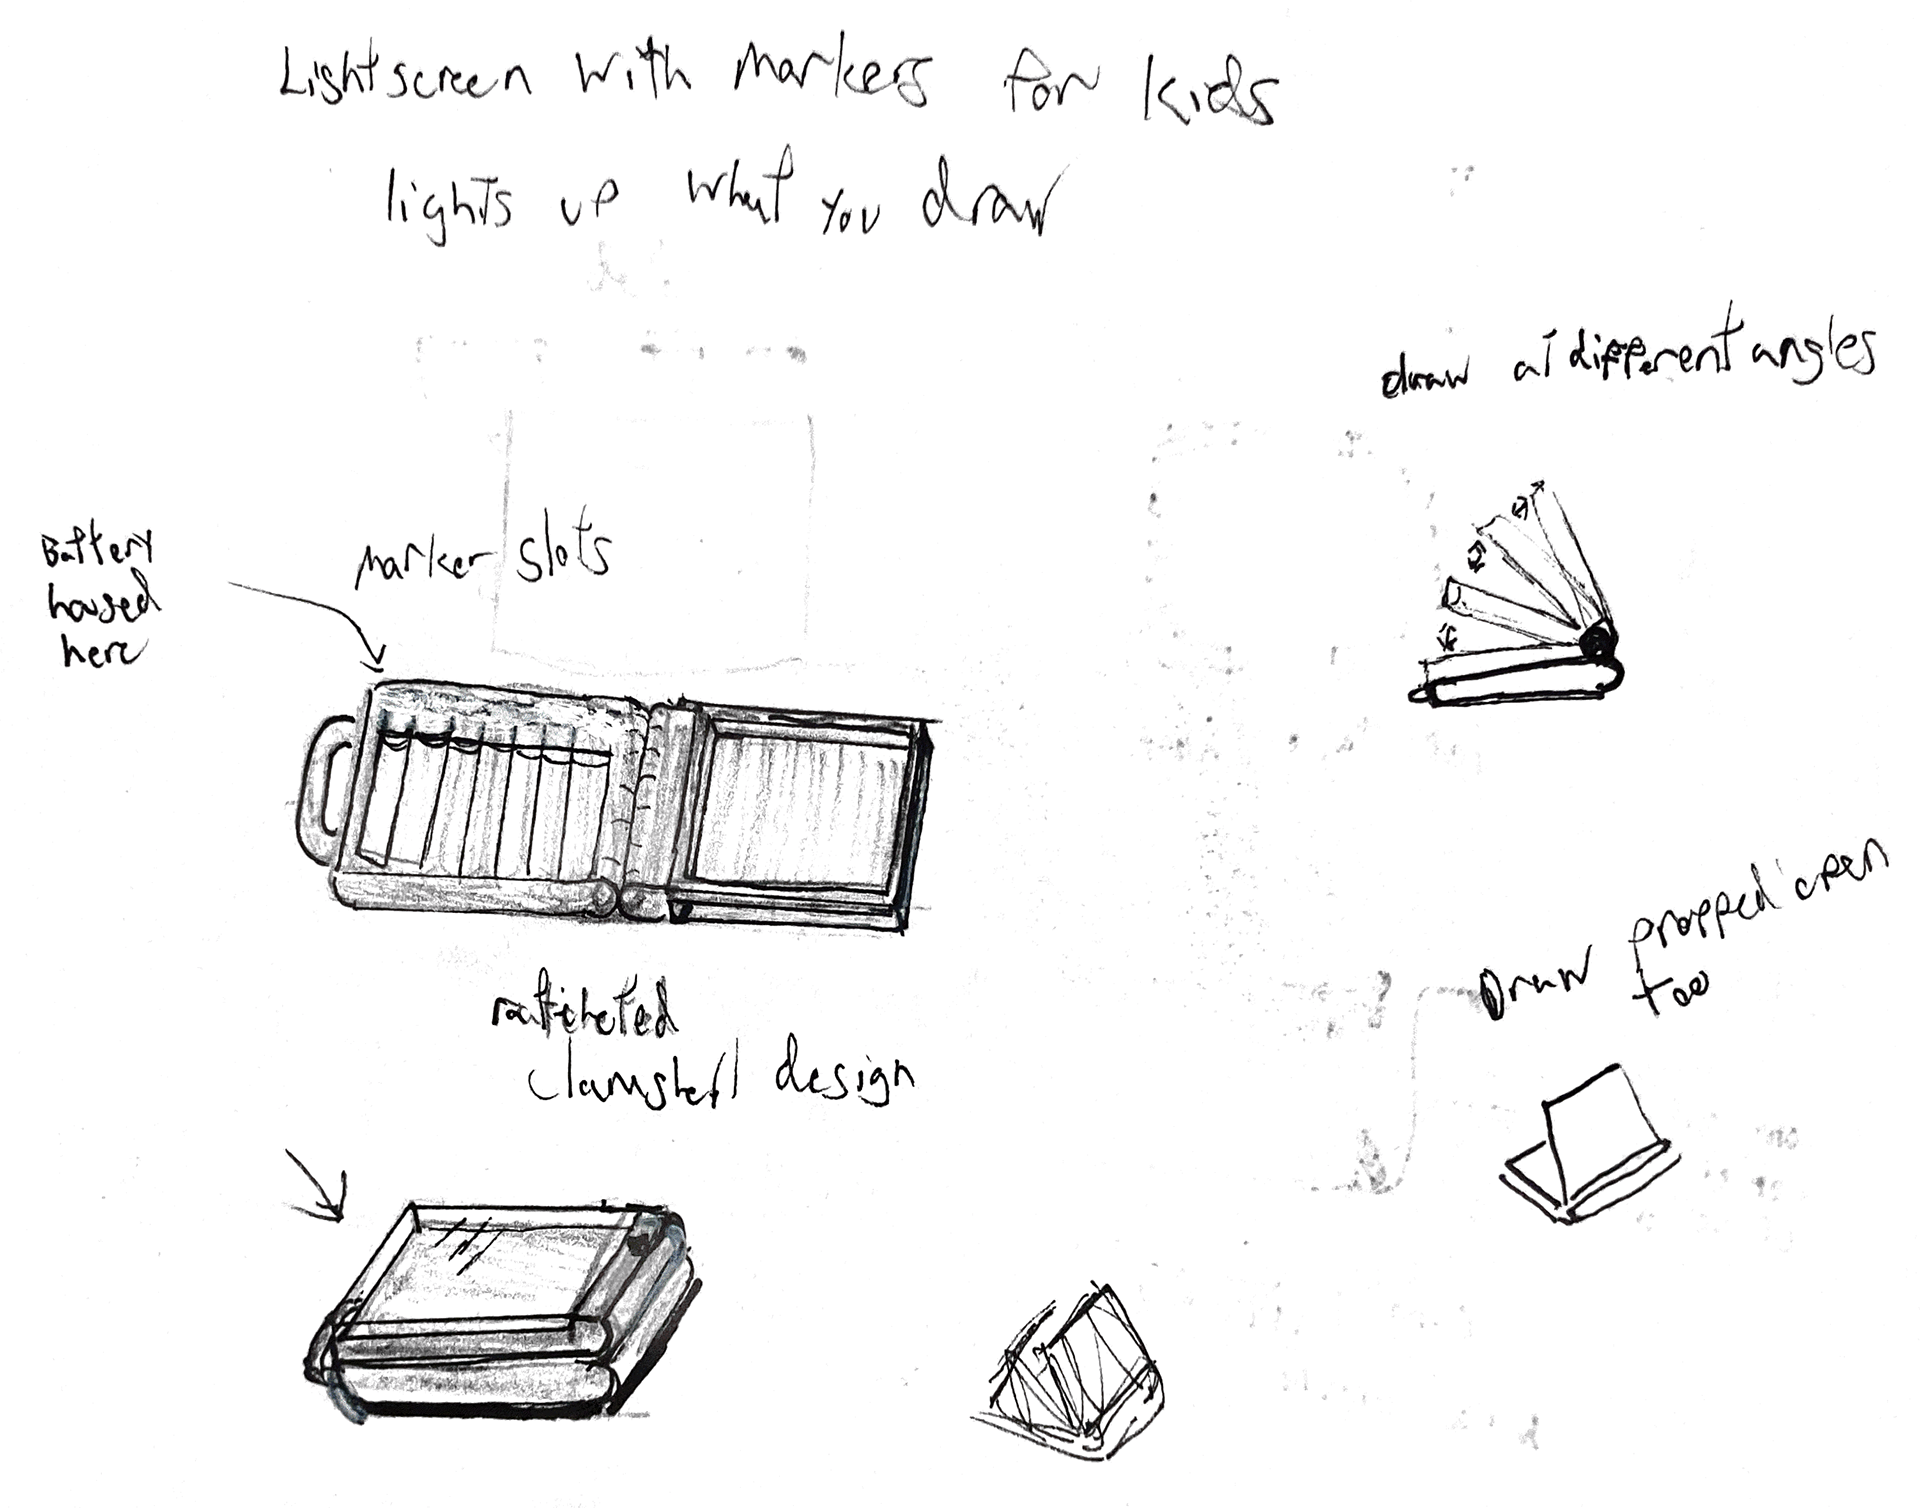 Lightscreen with markers for kids
lights up what you draw
draw at different angles
Battery
housed
here
marker slots
Draw propped open
too
clamshell design